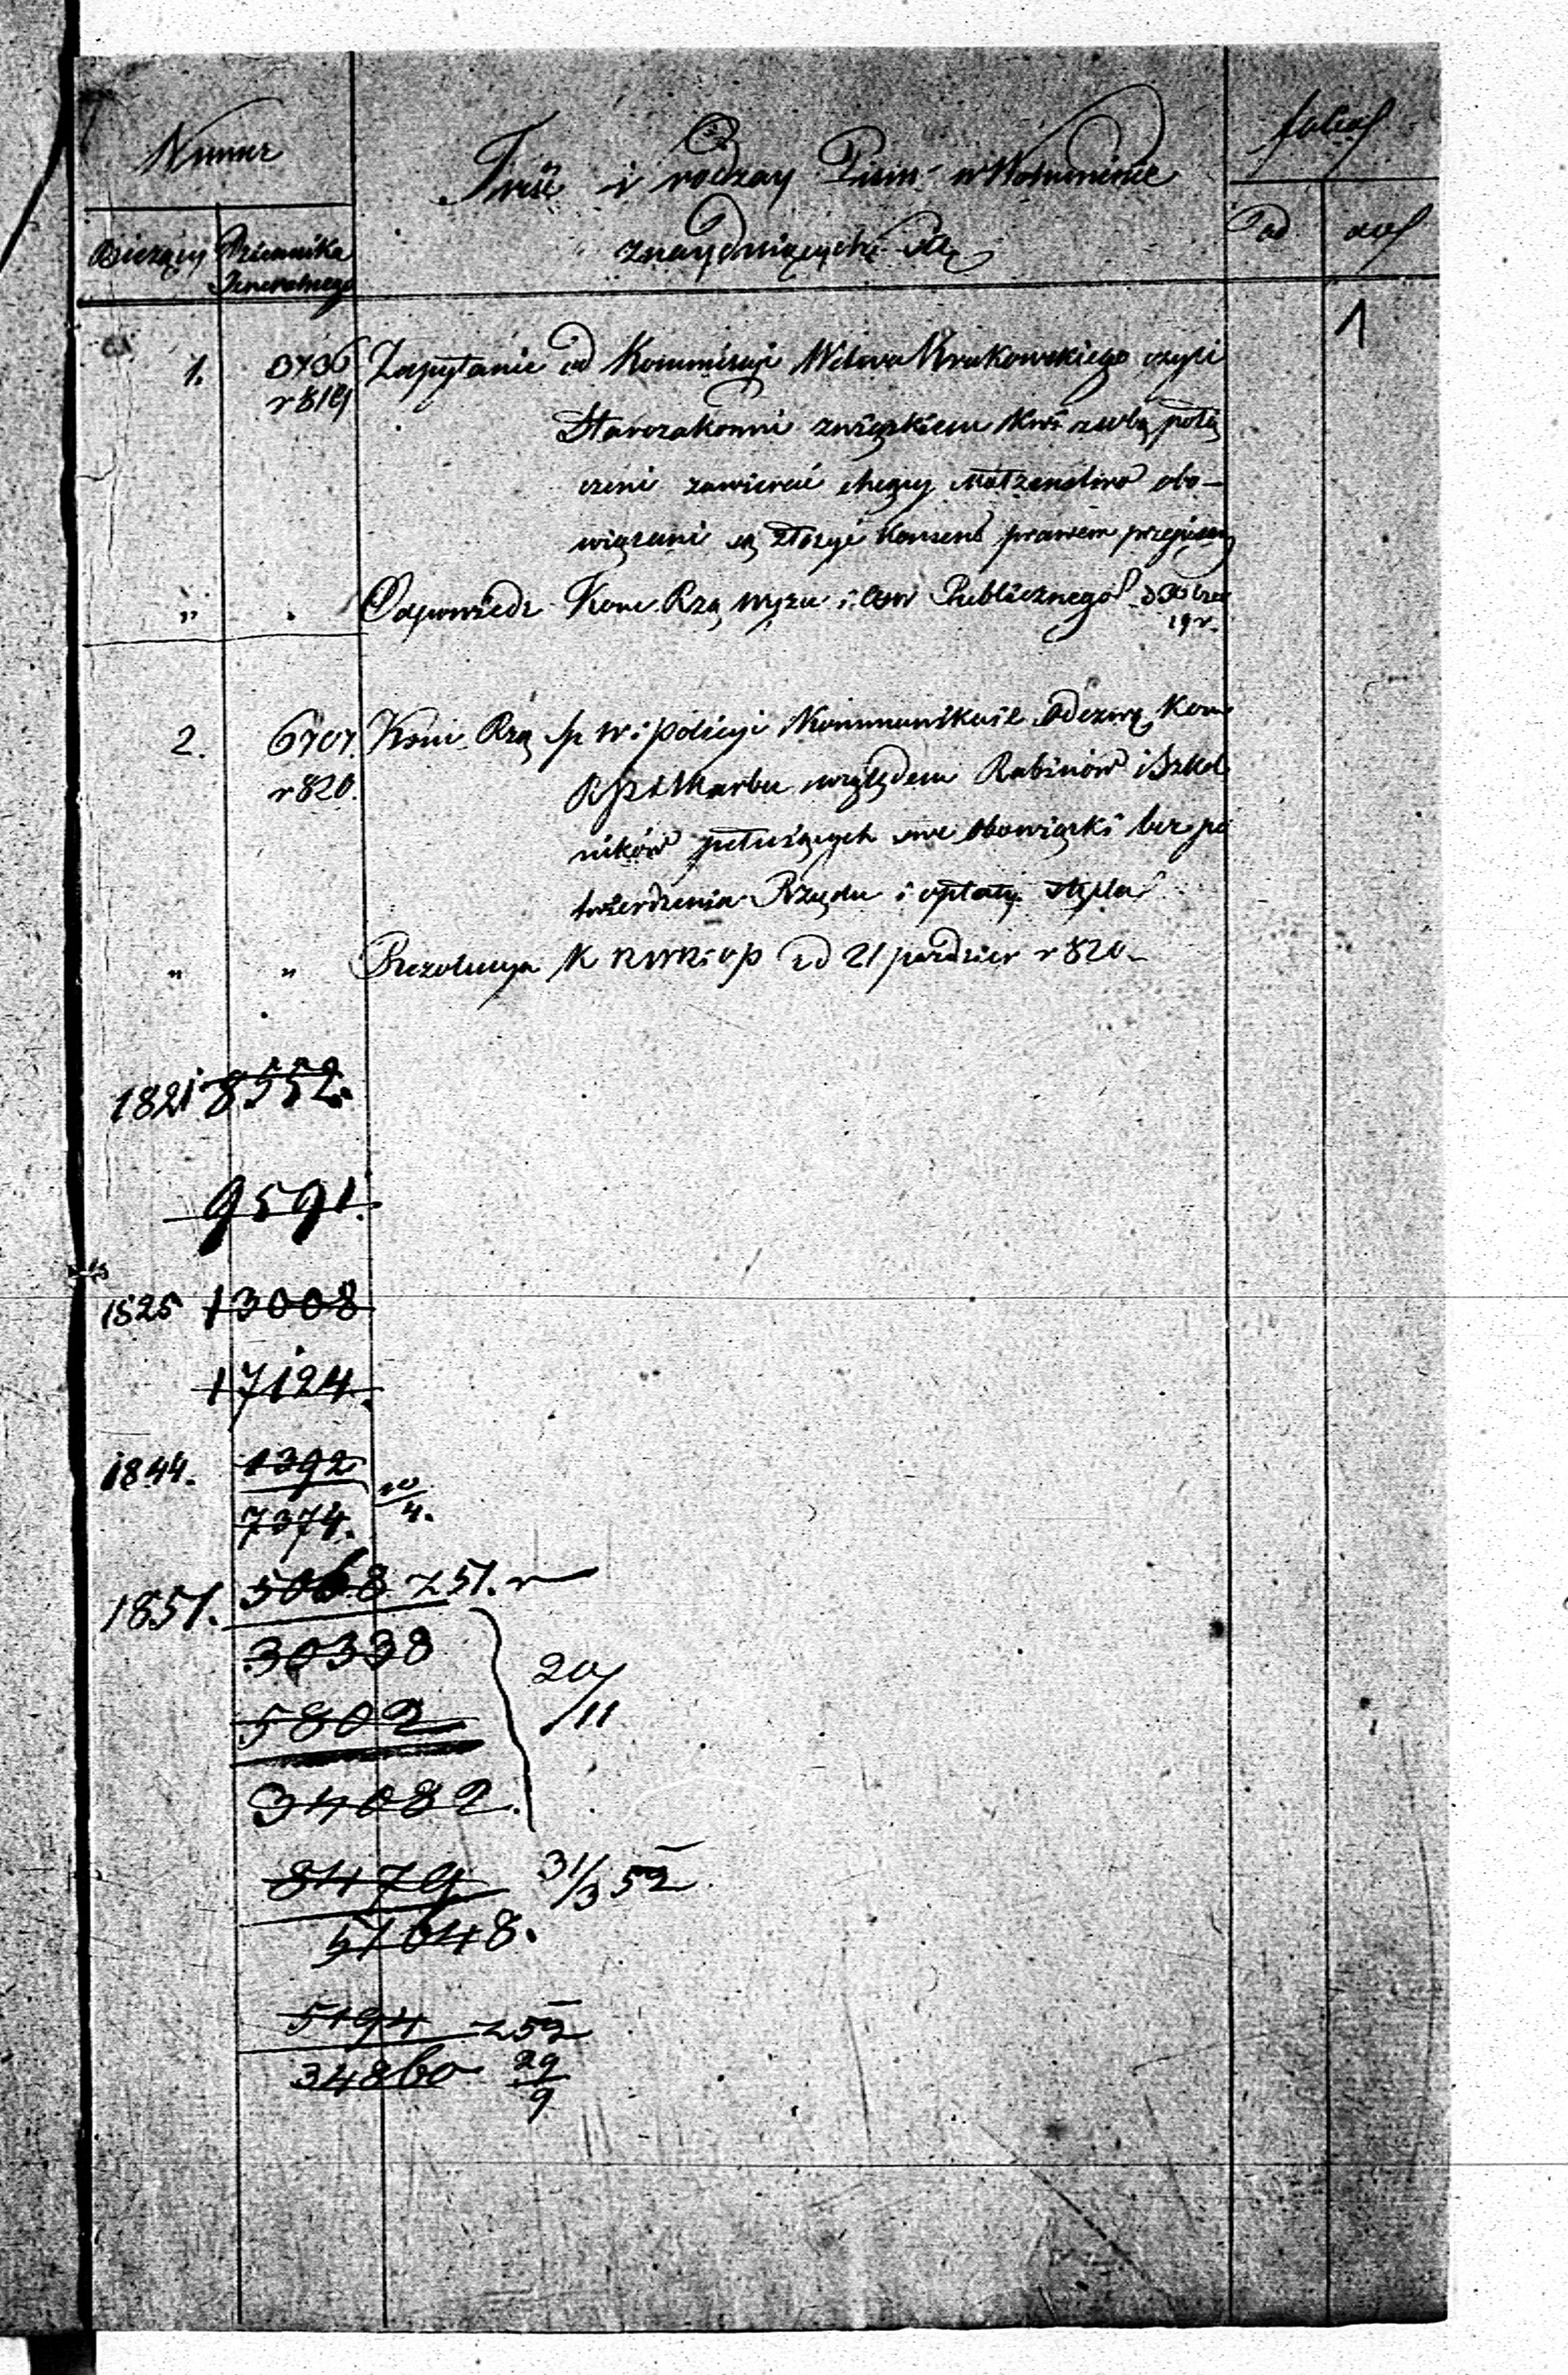 Numer
Treść i rodzay Pism w Woluminie
foliał
Bieżący Dziennika
Generalnego
znayduiących się
Od do
1
1. 3736 Zapytanie od Kommissyi Wdwa Krakowskiego czyli
r 819
Starozakonni związkiem krwi z sobą połą
czeni zawierać chcący Małżeństwo obo-
wiązani są złożyć Konsens prawem przepisany
" " Odpowiedz Kom Rzą Wyzn i Ośw Publicznego
19 r.
2. 6707. Kom Rzą Sp W i Policyi Kommunikuie Odezwę Kom
r 820.
R P i Skarbu względem Rabinów i Szkol
ników pełniących swe obowiązki bez po
twierdzenia Rządu i opłaty stępla
" " Rezolucya K R W R i O P z d 21 paździer r 820
1821 8552.
9591.
1825 13008
17124.
1844. 1392
7374. 10/4.
1851. 5068 z 51. r
30338
5802 20/11
34082.
8479 31/3 52
51648.
5194 z 52
34860 29/9